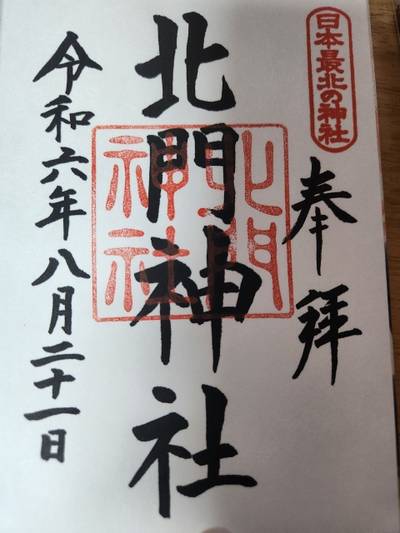 日本最北の神社
奉拝
北門神社
北門
神社
令和六年八月二十一日